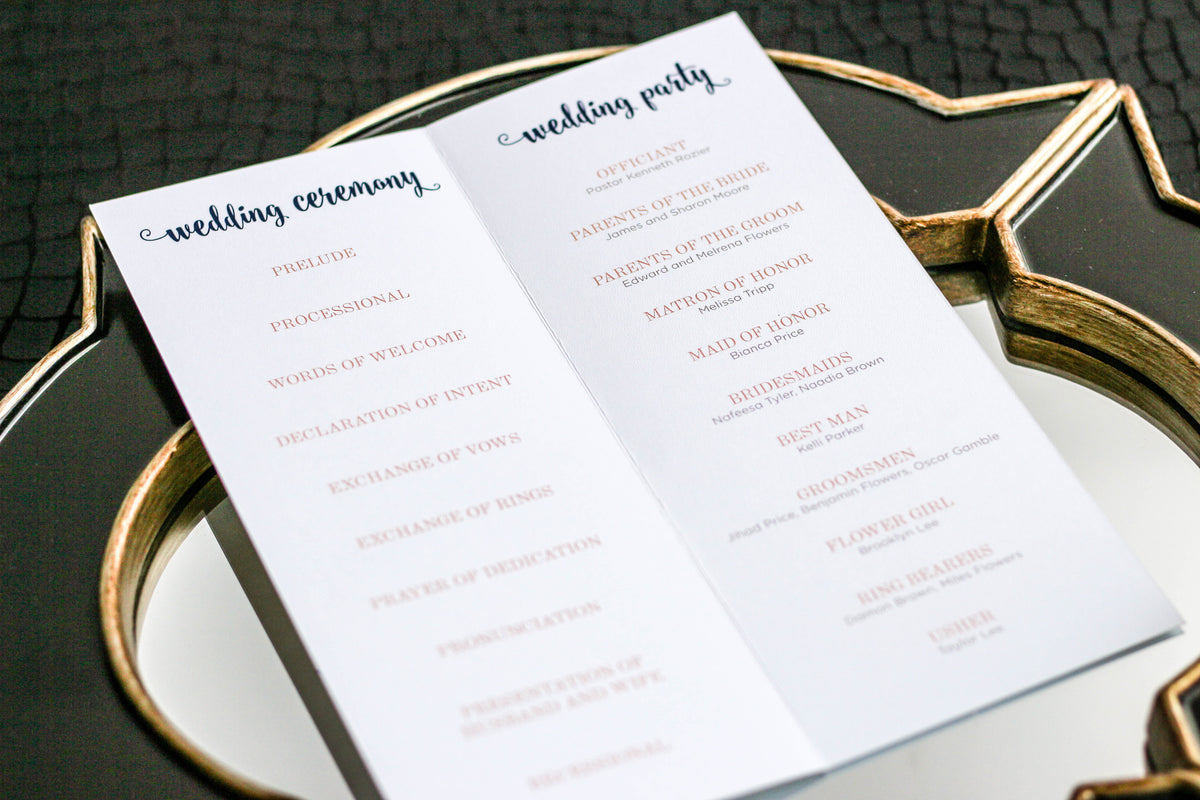 wedding ceremony
PRELUDE
PROCESSIONAL
WORDS OF WELCOME
DECLARATION OF INTENT
EXCHANGE OF VOWS
EXCHANGE OF RINGS
PRAYER OF DEDICATION
PRONUNCIATION
PRESENTATION OF
HUSBAND AND WIFE
RECESSIONAL
wedding party
OFFICIANT
Pastor Kenneth Rozier
PARENTS OF THE BRIDE
James and Sharon Moore
PARENTS OF THE GROOM
Edward and Melrena Flowers
MATRON OF HONOR
Melissa Tripp
MAID OF HONOR
Bianca Price
BRIDESMAIDS
Nafeesa Tyler, Naadia Brown
BEST MAN
Kelli Parker
GROOMSMEN
Jihad Price, Benjamin Flowers, Oscar Gamble
FLOWER GIRL
Brooklyn Lee
RING BEARERS
Damon Brown, Miles Flowers
USHER
Taylor Lee